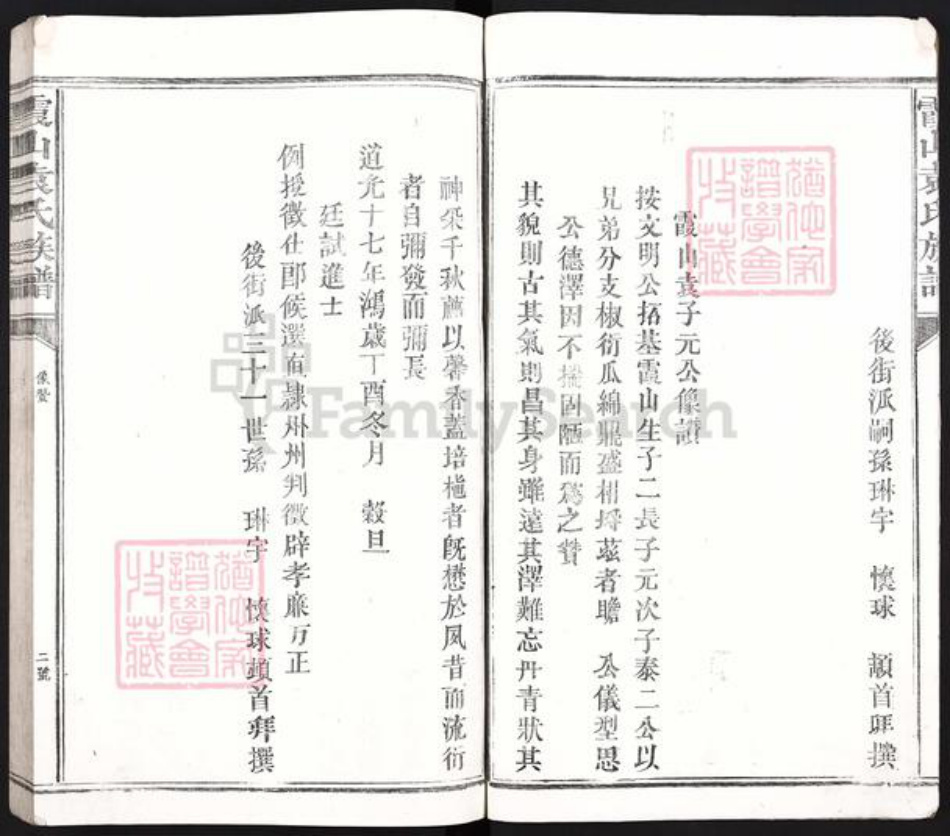 後街派嗣孫琳宇 懷球 顓首拜撰
霞山袁子元公像讃
按文明公拓基霞山生子二長子元次子泰二公以
兄弟分支椒衍瓜綿飛盛相埒茲者瞻 公儀型思
公德澤因不揣固陋而為之贊
其貌則古其氣則昌其身雖遠其澤難忘丹青狀其
神采千秋薦以馨香蓋培植者既懋於夙昔而流衍
者自彌發而彌長
道光十七年鴻歲丁酉冬月 穀旦
廷試進士
例授徵仕郎候選直隷州州判徵辟孝廉方正
後街派三十一世孫 琳宇 懷球頓首拜撰
霞山袁氏族譜
像贊
二號
霞山袁氏族譜
譜學會
收藏
譜學會
收藏
FamilySearch